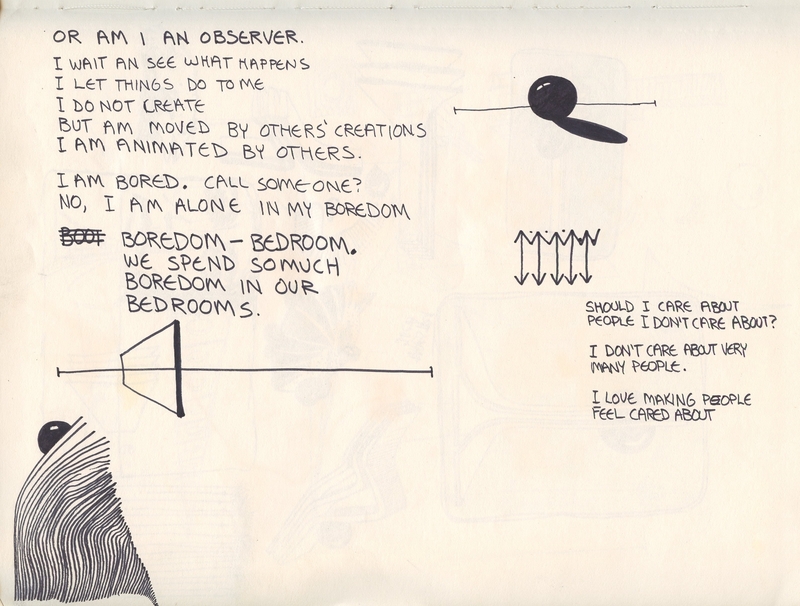 OR AM I AN OBSERVER.
I WAIT AN SEE WHAT HAPPENS
I LET THINGS DO TO ME
I DO NOT CREATE
BUT AM MOVED BY OTHERS' CREATIONS
I AM ANIMATED BY OTHERS.
I AM BORED. CALL SOMEONE?
NO, I AM ALONE IN MY BOREDOM
BOREDOM - BEDROOM.
WE SPEND SO MUCH
BOREDOM IN OUR
BEDROOMS.
SHOULD I CARE ABOUT
PEOPLE I DON'T CARE ABOUT?
I DON'T CARE ABOUT VERY
MANY PEOPLE.
I LOVE MAKING PEOPLE
FEEL CARED ABOUT